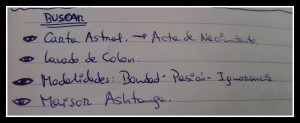 BUSCAR
Carta Astral. → Acta de Nacimiento.
Lavado de Colon.
Modalidades: Bondad - Pasión - Ignorancia
Maisor Ashtanga.